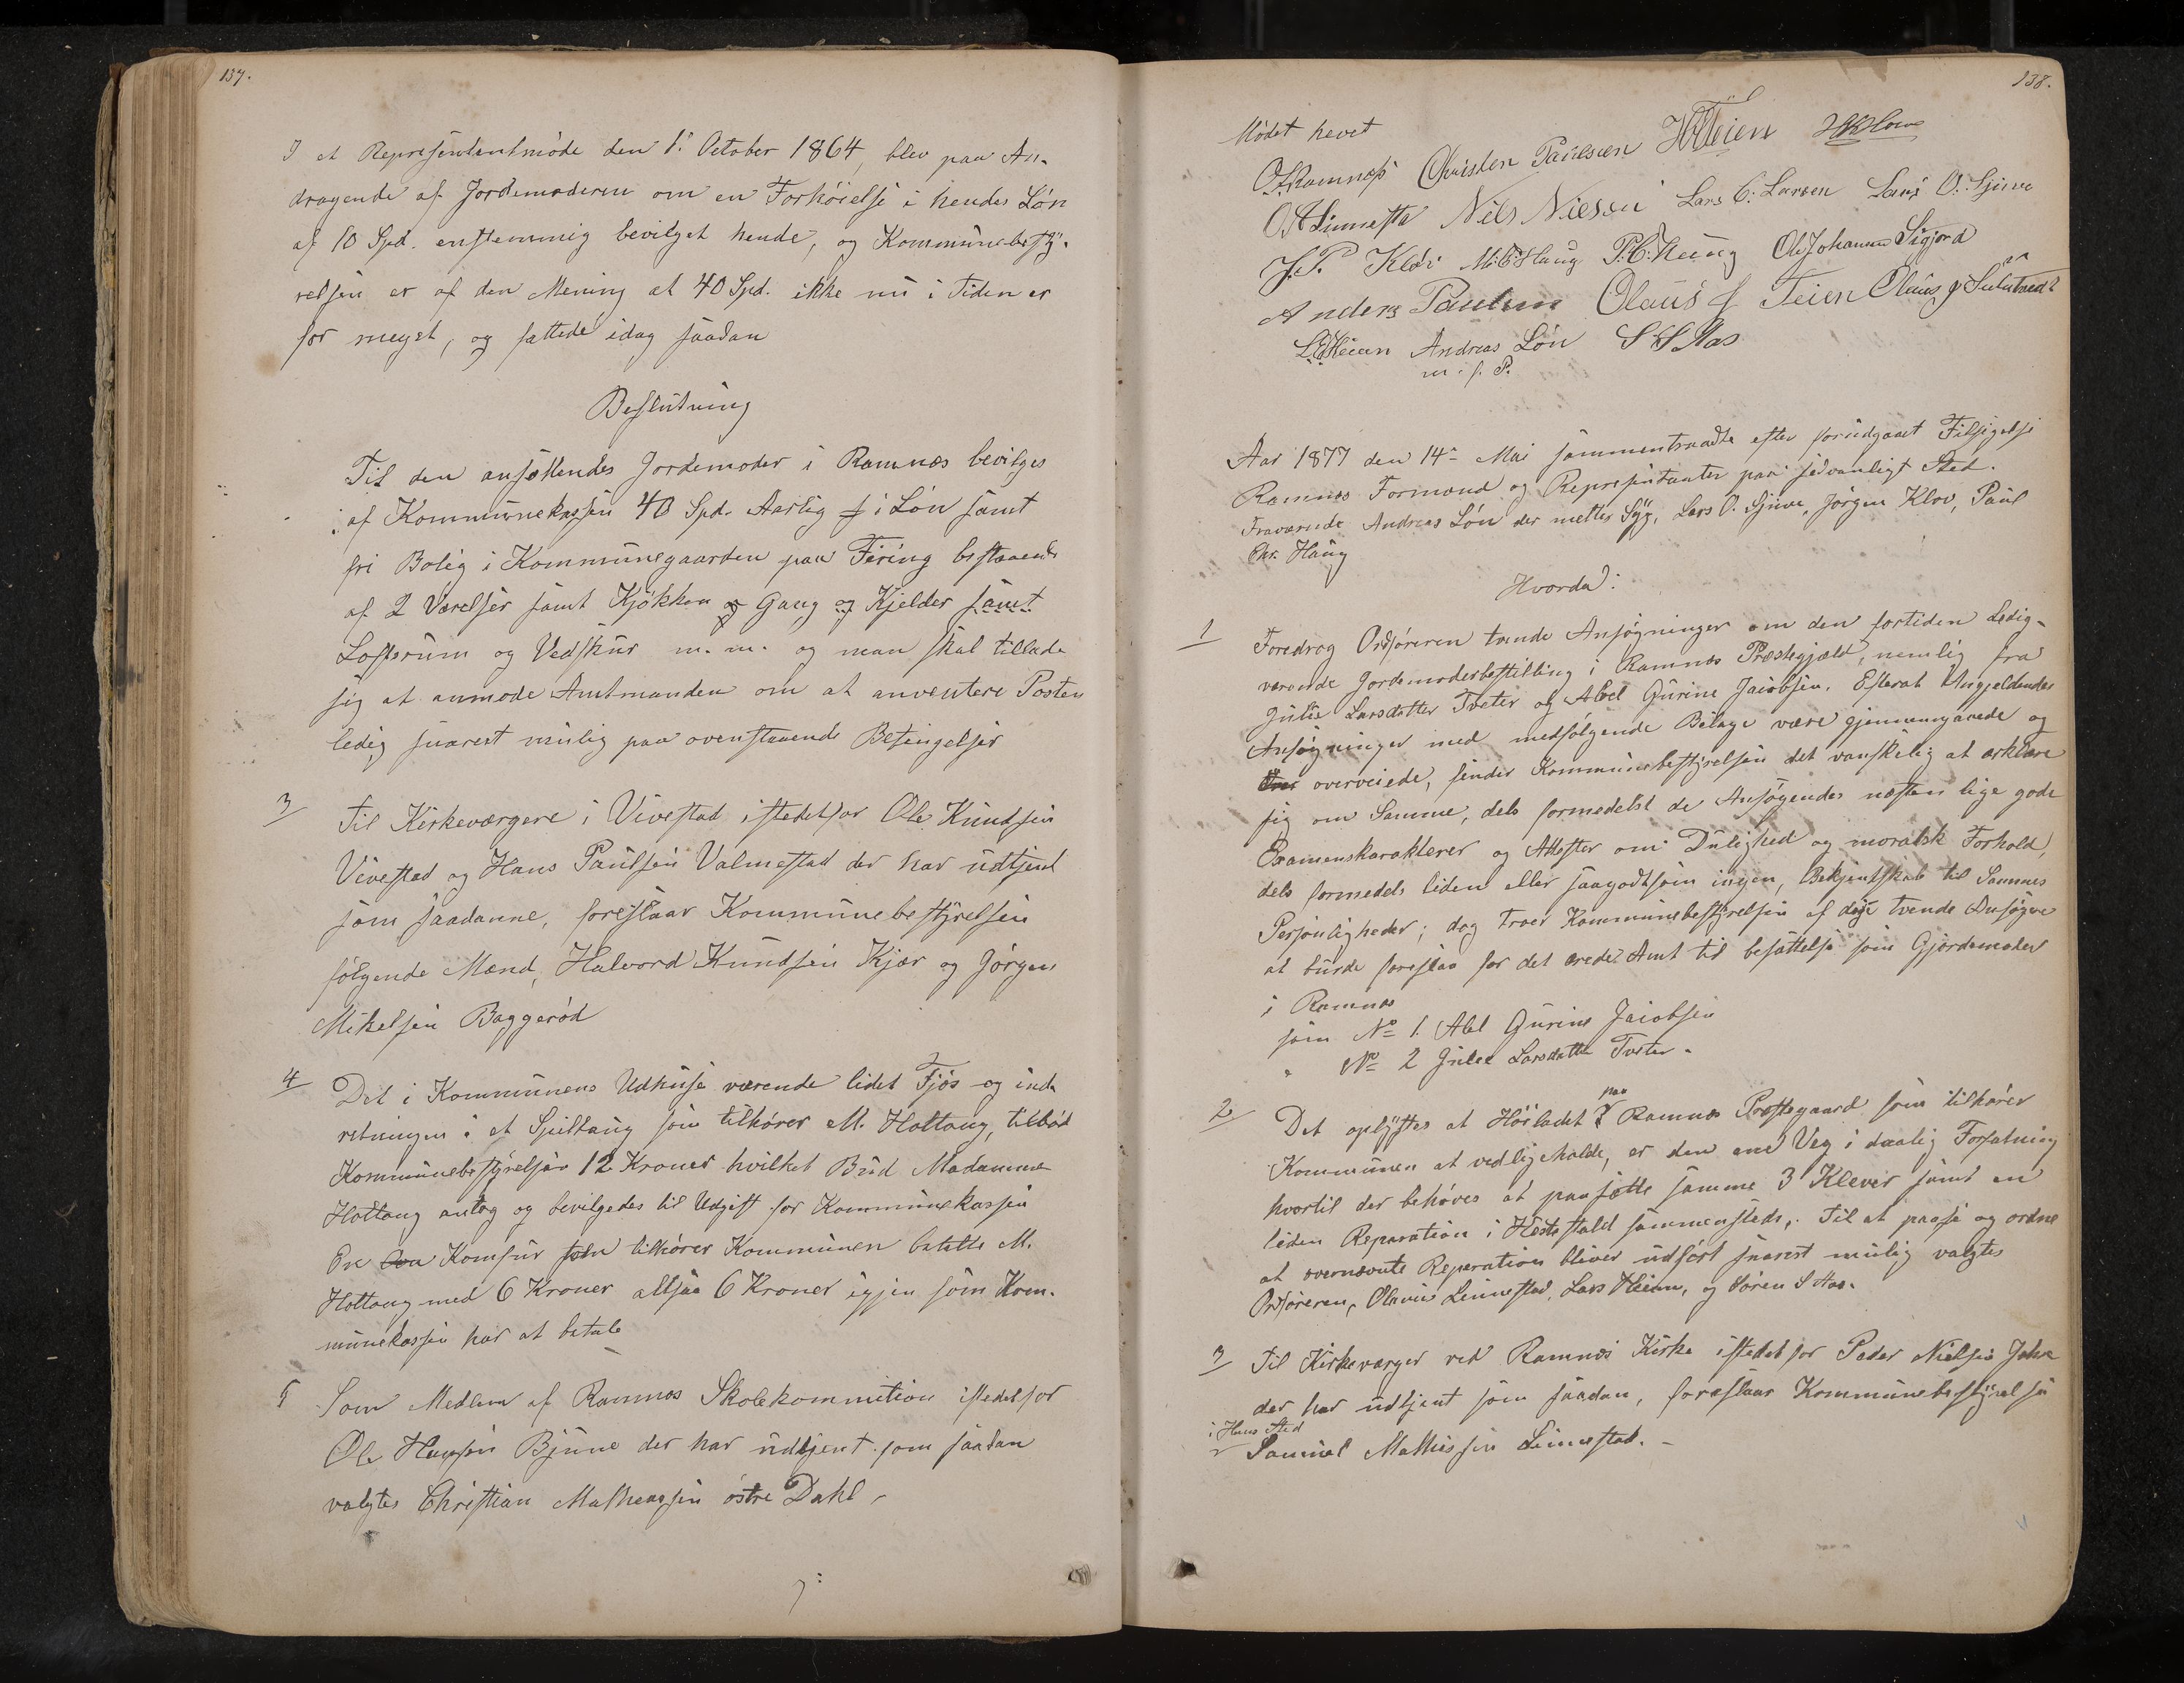 137.
I et Repræsentantmöde den 1ste October 1864, blev paa An-
dragende af Jordemoderen om en Forhöielse i hendes Lön
af 10 Spd. enstemmig bevilget hende, og Kommunebesty-
relsen er af den Mening at 40 Spd. ikke nu i Tiden er
for meget, og fattede idag saadan
Beslutning
Til den ansættendes Jordemoder i Ramnæs bevilges
af Kommunekassen 40 Spd. Aarlig i Lön samt
fri Bolig i Kommunegaarden paa Firing bestaaende
af 2 Værelser samt Kjökken og Gang og Kjelder samt
Lofterum og Vedskur m. m. og man skal tillade
sig at anmode Amtmanden om at avertere Posten
ledig snarest mulig paa ovenstaaende Betingelser
3 Til Kirkeværgere i Vivestad istedetfor Ole Knudsen
Vivestad og Hans Paulsen Valmestad der har udtjent
som saadanne, foreslaar Kommunebestyrelsen
fölgende Mænd, Halvord Knudsen Kjær og Jörgen
Mikelsen Baggeröd
4 Det i Kommunens Udhuse værende lidet Fjös og ind-
retningen i et Spiltaug som tilhörer M. Hottang, tilböd
Kommunebestyrelsen 12 Kroner hvilket Bud Madamme
Hottang antog og bevilgedes til Udgift for Kommunekassen
En Komfur som tilhörer Kommunen betalte M.
Hottang med 6 Kroner altsaa 6 Kroner igjen som Kom-
munekassen har at betale
5 Som Medlem af Ramnæs Skolekommition istedetfor
Ole Hansen Bjune der har udtjent som saadan
valgtes Christian Matheassen östre Dahl
138.
Mödet hevet
O. Ramnæs Christen Paulsen H Teien
O A Linnesta Nils Nielsen Lars C. Larsen Lars O. Sjuve
J. P. Klov M. C. Haug P. C. Haug Ole Johannes Sigjord
Anders Paulsen Olaus J Teien Olaus
L E Heian Andreas Lön S S Aas
m. f. P.
Aar 1877 den 14de Mai sammentraadte efter forudgaaet Tilsigelse
Ramnæs Formænd og Repræsentanter paa sædvanligt Sted.
Fraværende Andreas Lön der meldte Syg, Lars O. Sjuve, Jörgen Klov, Paul
Chr. Haug
Hvorda:
1 Foredrog Ordföreren tvende Ansögninger om den fortiden Ledig-
værende Jordemoderbestilling i Ramnæs Præstegjæld, nemlig fra
Julie Larsdatter Tveter og Abel Gurine Jacobsen. Efterat Angjeldendes
Ansögninger med medfölgende Bilage være gjennemgaaede og
overveiede, finder Kommunebestyrelsen det vanskelig at erklære
sig om Samme, dels formedelst de Ansögendes næsten lige gode
Examenskarakterer og Attester om Dulighed og moralsk Forhold,
dels formedels liden eller saagodtsom ingen, Bekjentskab til Sammes
Personligheder; dog troer Kommunebestyrelsen af disse tvende Ansögere
at burde foreslaa for det ærede Amt til besættelse som Gjordemoder
i Ramnæs
som No 1. Abel Gurine Jacobsen
" No 2 Julie Larsdatter Tveter.
2 Det oplystes at Höiladet paa Ramnæs Prestegaard som tilhörer
Kommunen at vedligeholde, er den ene Veg i daalig Forfatning
hvortil der behöves at paasætte samme 3 Klever samt en
liden Reparation i Hestestald sammesteds. Til at paase og ordne
at overnævnte Reparation bliver udfört snarest mulig valgtes
Ordföreren, Olavus Linnestad, Lars Heian, og Sören S Aas.
3 Til Kirkeværger ved Ramnæs Kirke istedetfor Peder Nielsen Jahre
der har udtjent som saadan, foreslaar Kommunebestyrelsen
i Hans Sted
Samuel Mathissen Linnestad.